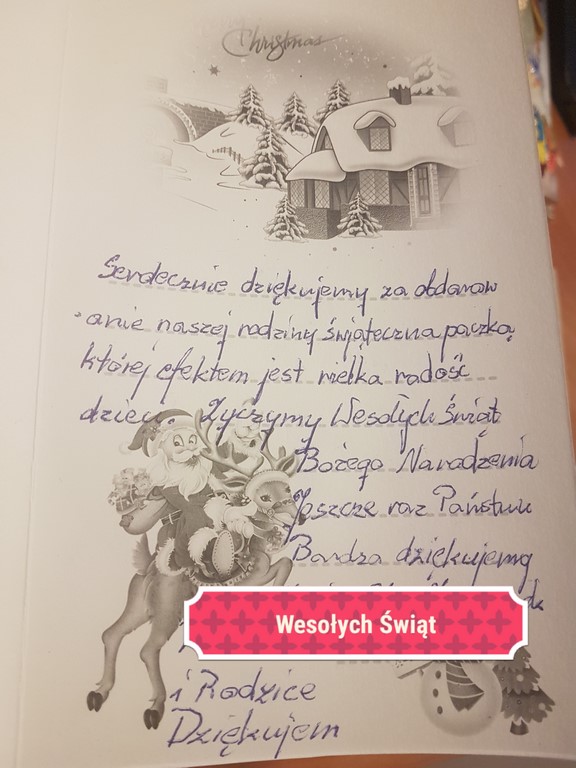 Christmas
Serdecznie dziękujemy za obdarow
anie naszej rodziny świąteczna paczką
której efektem jest wielka radość
dzieci. Życzymy Wesołych Świąt
Bożego Narodzenia
Jeszcze raz Państwu
Bardzo dziękujemy
Wesołych Świąt
i Rodzice
Dziękujem